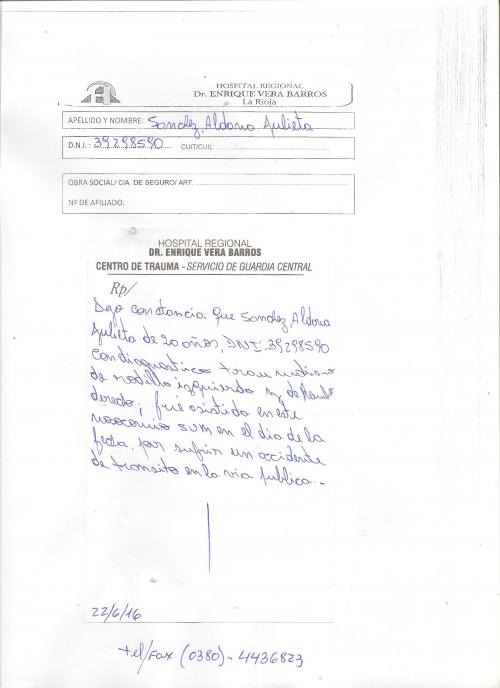 HOSPITAL REGIONAL
Dr. ENRIQUE VERA BARROS
La Rioja
APELLIDO Y NOMBRE: Sanchez, Aldana Julieta
D.N.I.: 39298590 CUIT/CUIL:
OBRA SOCIAL/ CIA. DE SEGURO/ ART:
Nº DE AFILIADO:
HOSPITAL REGIONAL
DR. ENRIQUE VERA BARROS
CENTRO DE TRAUMA - SERVICIO DE GUARDIA CENTRAL
Rp/
Dejo constancia que Sanchez, Aldana
Julieta de 20 años, DNI: 39298590
con diagnostico
de rodilla izquierda y de
fue asistida en este
nosocomio en el dia de la
fecha, por sufrir un accidente
de transito en la via publica.-
22/6/16
tel/Fax (0380)-4436823